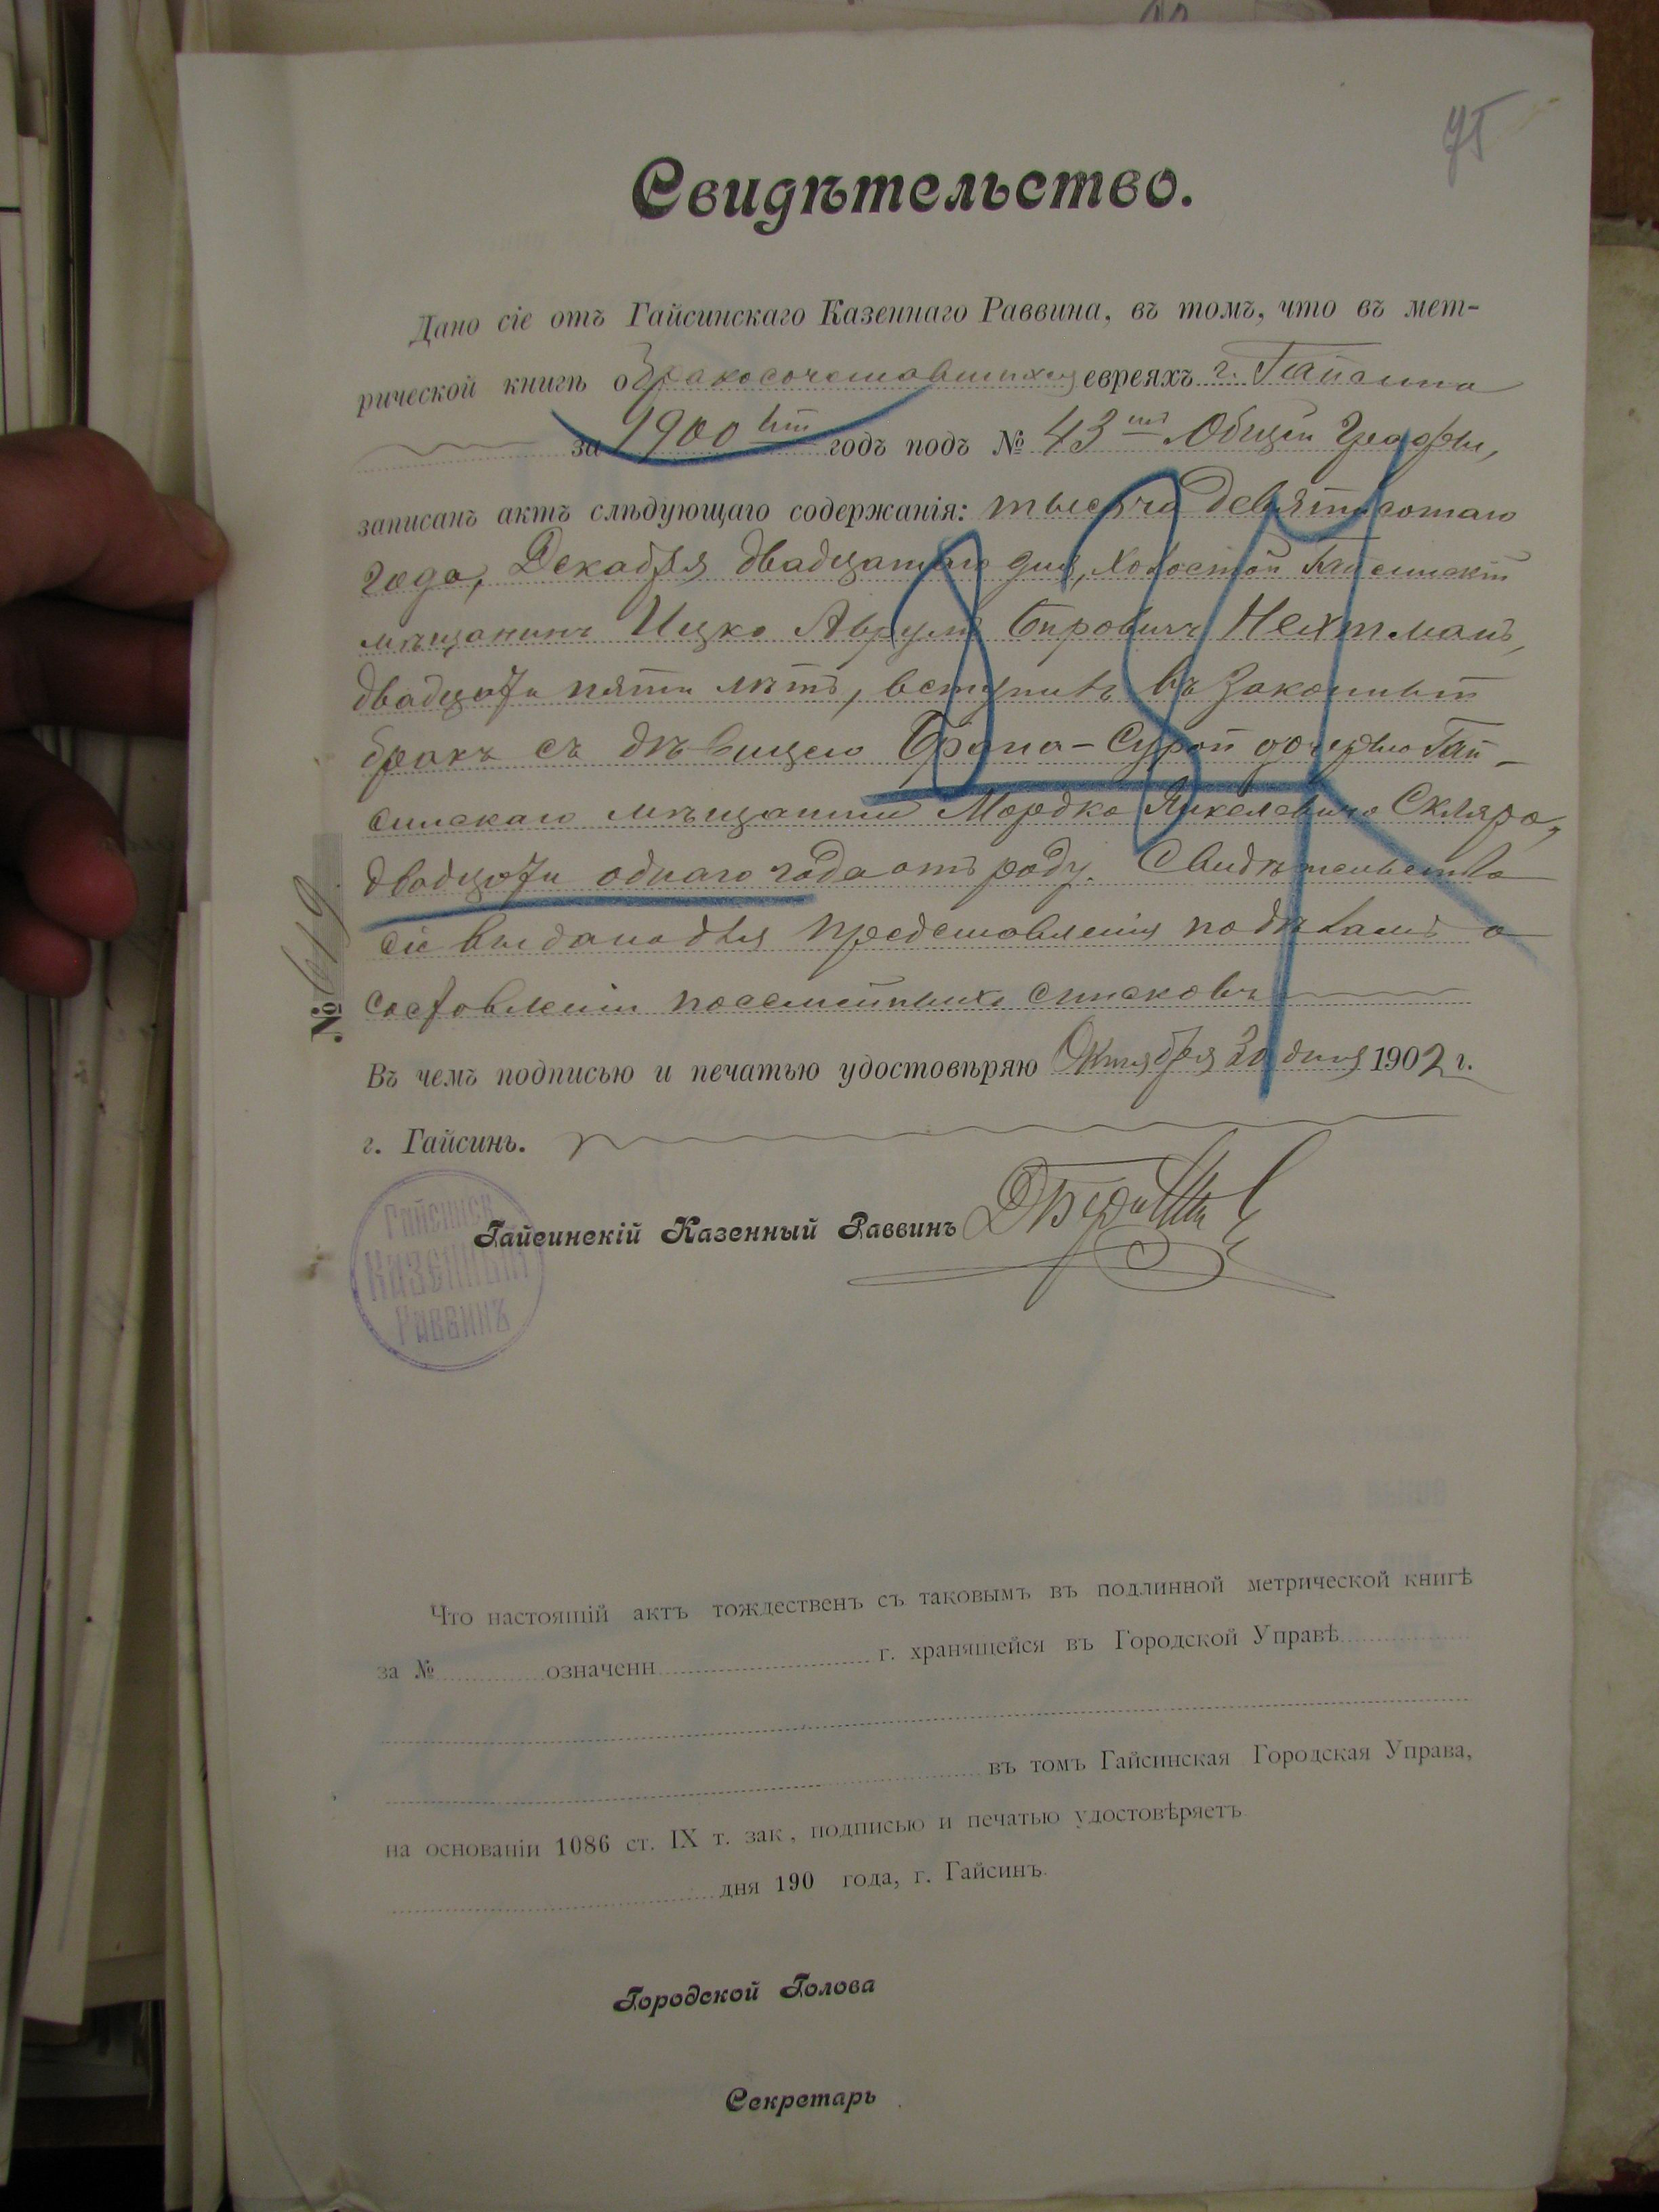 75
Свидѣтельство.
Дано сіе отъ Гайсинскаго Казеннаго Раввина, въ томъ, что въ мет-
рической книгѣ о бракосочетавшихся евреяхъ г. Гайсина
за 1900 ый годъ подъ № 43 ій Общей Графы,
записанъ актъ слѣдующаго содержанія: тысяча девятисотаго
года, Декабря двадцатаго дня, холостой Гайсинскій
мѣщанинъ Ицко Аврумъ Беровичъ Нехтманъ,
двадцати пяти лѣтъ, вступилъ въ законный
бракъ съ дѣвицею Брана-Сурой дочерью Гай-
синскаго мѣщанина Мордко Янкелевича Скляра,
двадцати одного года отъ роду. Свидѣтельство
сіе выдано для представленія по дѣламъ о
составленіи посемейныхъ списковъ
Въ чемъ подписью и печатью удостовѣряю Октября 30 дня 1902 г.
г. Гайсинъ.
№ 619
Гайсинскій Казенный Раввинъ
Гайсинск
Казенный
Раввинъ
Что настоящій актъ тождественъ съ таковымъ въ подлинной метрической книгѣ
за № означенн г. хранящейся въ Городской Управѣ
въ томъ Гайсинская Городская Управа,
на основаніи 1086 ст. IX т. зак, подписью и печатью удостовѣряетъ
дня 190 года, г. Гайсинъ.
Городской Голова
Секретарь